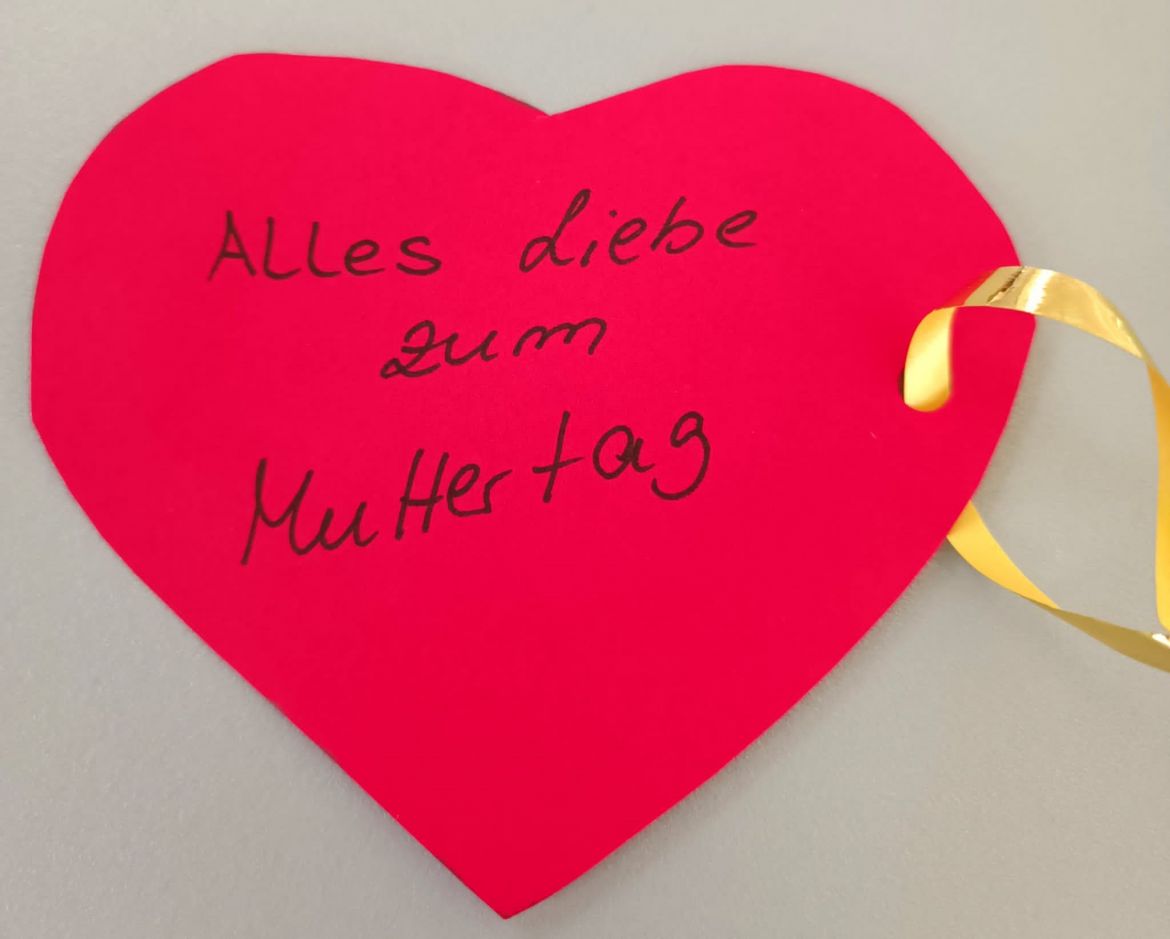 Alles Liebe
zum
Muttertag